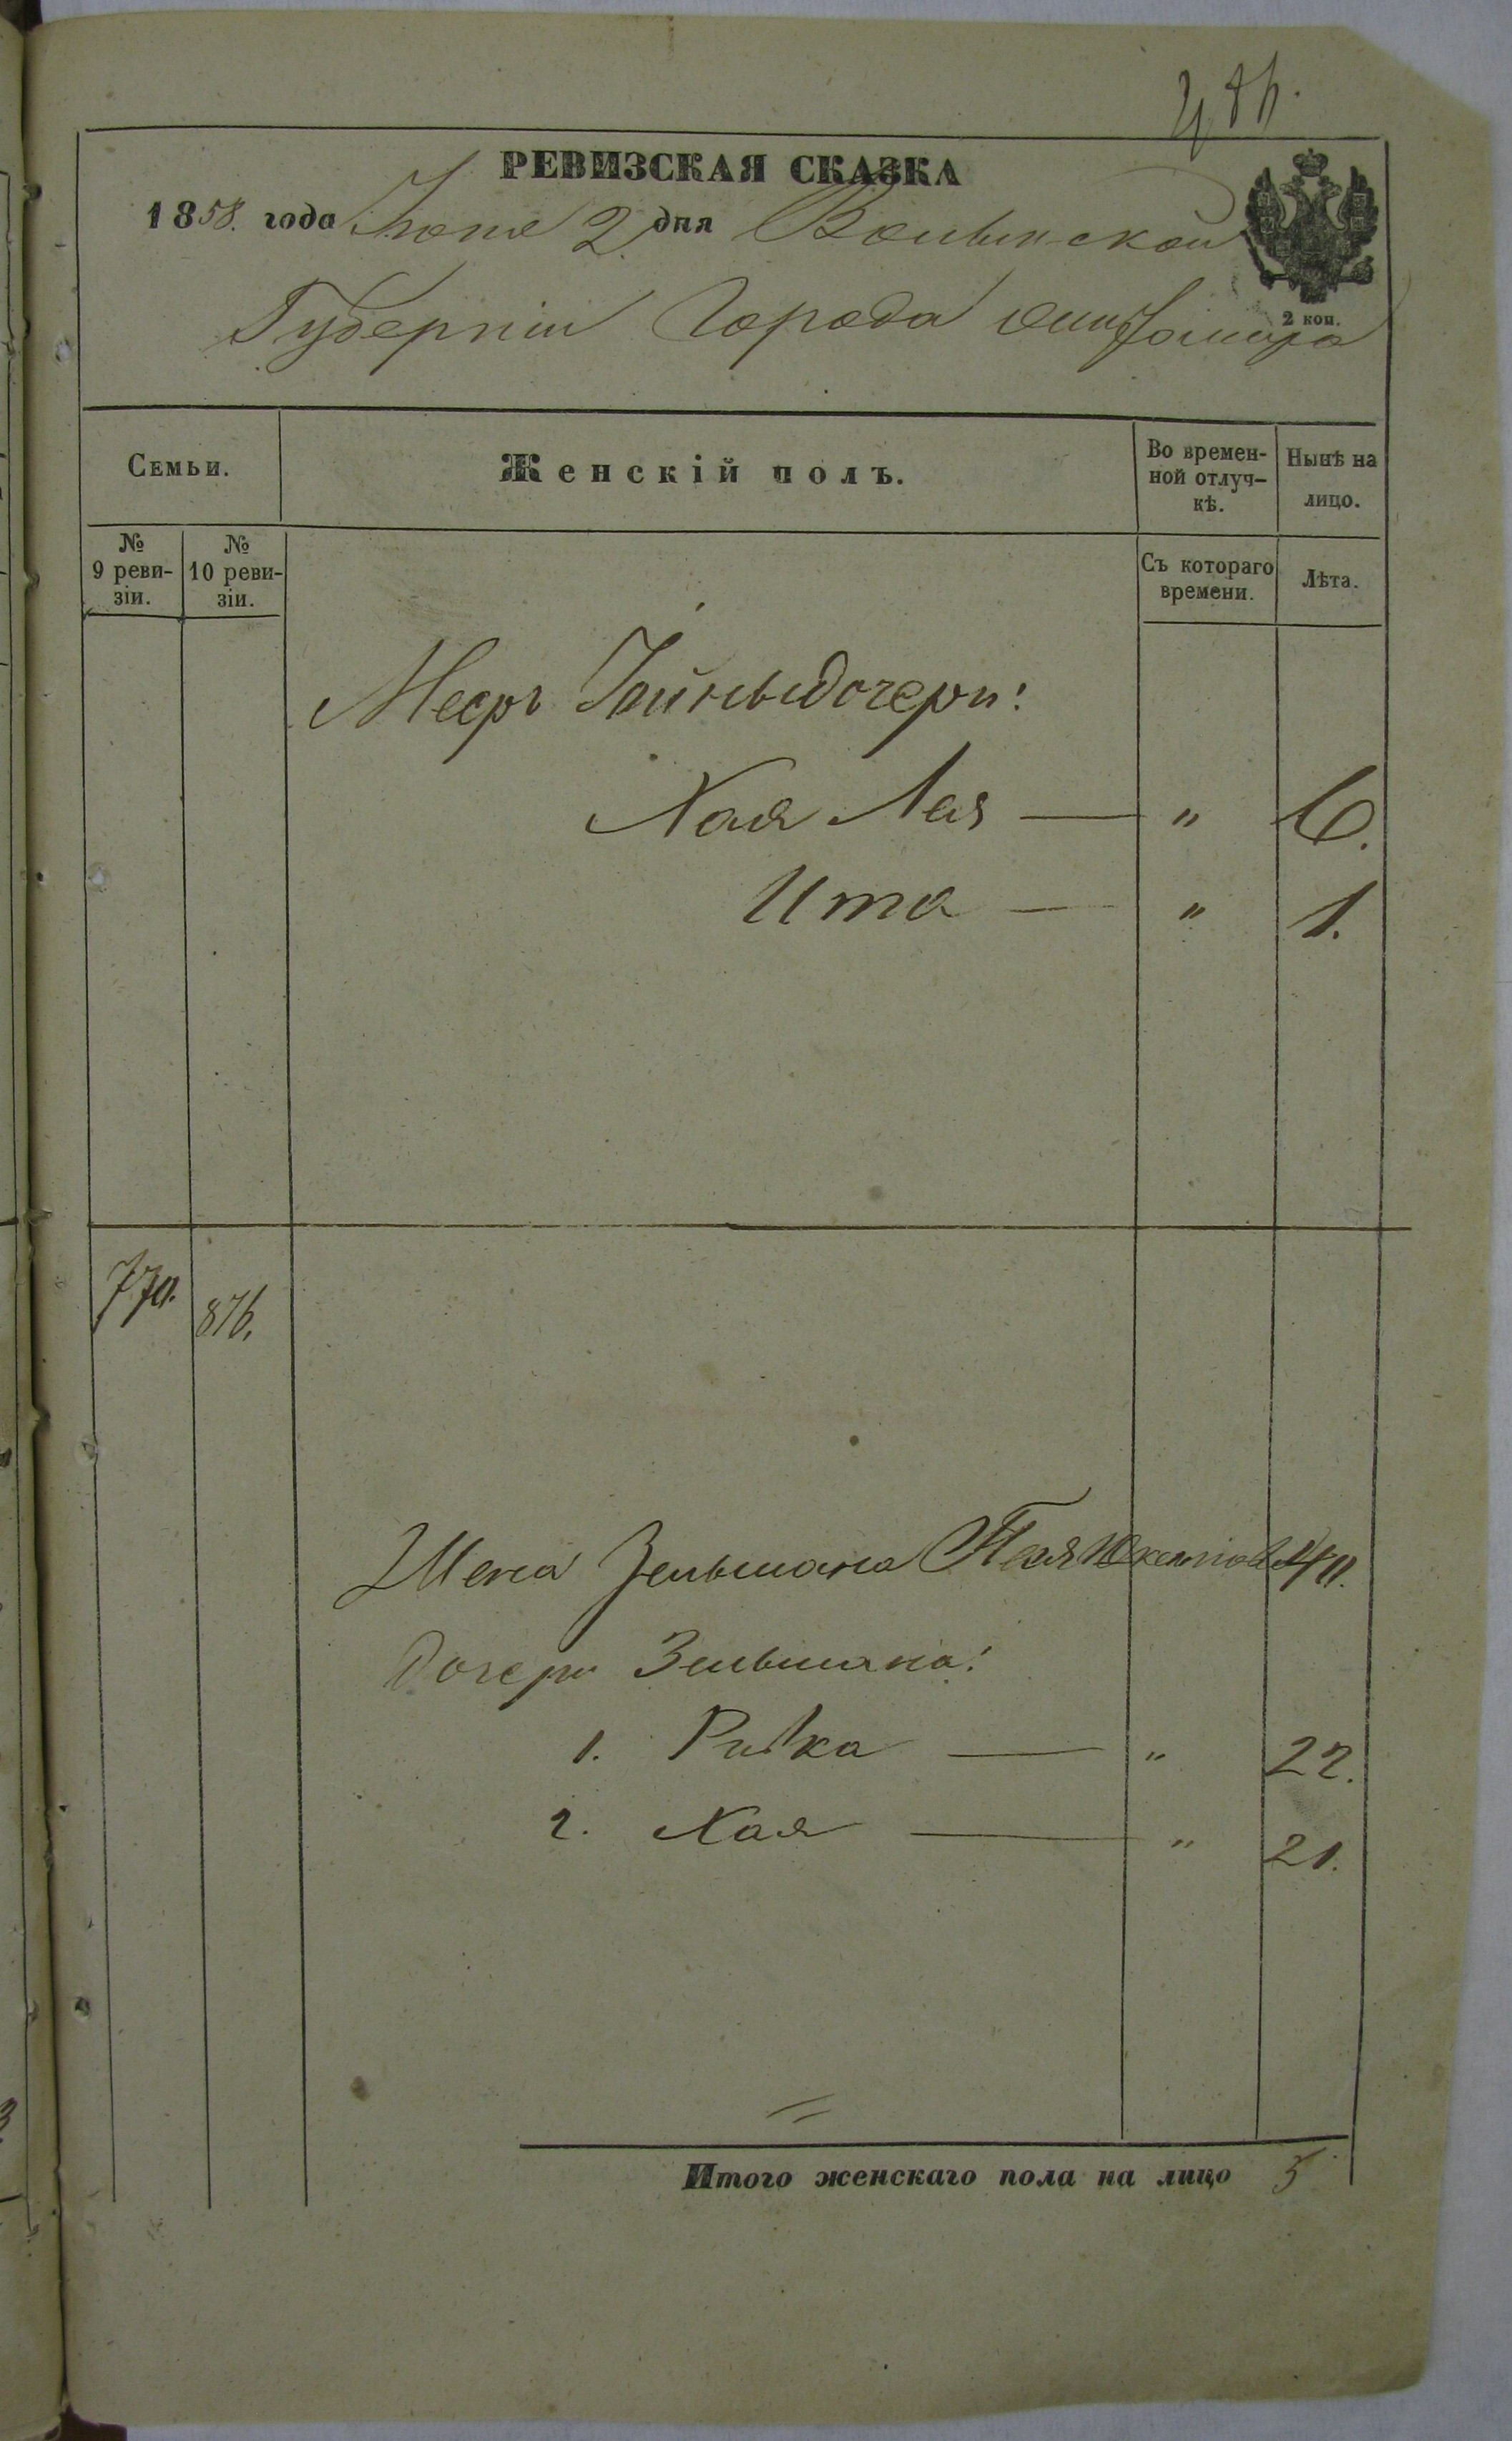 РЕВИЗСКАЯ СКАЗКА
1858. года Іюня 2. дня Волынской
Губерніи Города Житоміра
2 коп.
Семьи.
Женскій полъ.
Во времен-
ной отлуч-
кѣ.
Нынѣ на
лицо.
№
9 реви-
зіи.
№
10 реви-
зіи.
Съ котораго
времени.
Лѣта.
дочери:
Хая Лея — " 6.
Ита — " 1.
770. 876.
Жена Зельмана 40.
Дочери Зельмана:
1. Ривка — " 22.
2. Хая — " 21.
Итого женскаго пола на лицо 5